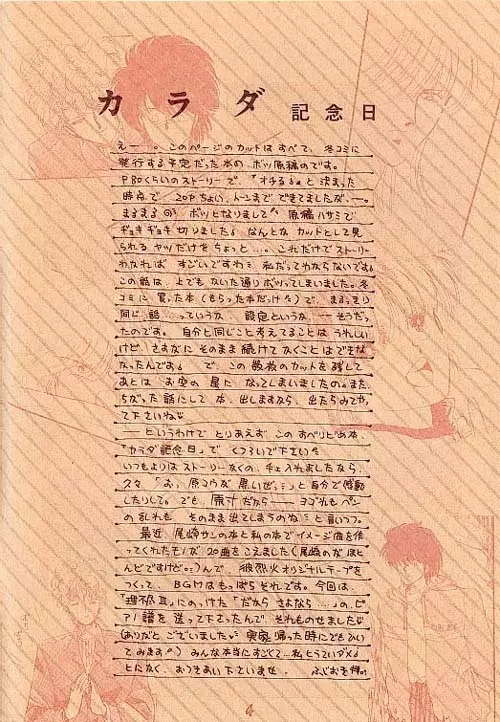 カラダ 記念日
えー。このページのカットはすべて、冬コミに
発行する予定だった本の、ボツ原稿のです。
P80くらいのストーリーで、「オチる。」と決まった
時点で 20Pちょい、トーンまで できてましたが、ー。
まるまる ボツになりまして 原稿ハサミで
ギョキギョキ 切りました。なんとか カットとして見
られる ヤツだけを ちょっと…。これだけで ストーリー
わかれば すごいですわ 私だってわからないです。
この話は、上でも かいた通り ボツってしまいました。冬
コミに 買った本(もらった本だっけ)で、まるっきり
同じ 話 …っていうか、設定というか ー そうだっ
たのです。自分と同じこと考えてることは うれしい
けど、さすがに そのまま 続けてかくことは できな
かったんです。で、この数枚のカットを残して
あとは お空の 星に なってしまいましたの。また、
ちがった 話にして 本、出しますなら、出たらみてやっ
て下さいね
ーというわけで とりあえず この すべりこみ本、
「カラダ記念日」で くつろいで下さい
いつもよりは ストーリーなくの、チェ入れましたなら、
久々 「おっ、原コウが 黒いぜ。」と自分で感動
したりして。でも 原寸だから ー ヨゴれも ペン
の乱れも そのまま 出てしまうのね と言いつつ。
最近、尾崎サンの本と私の本で イメージ曲を作
ってくれたモノが 20曲をこえました(尾崎のが ほと
んどですけど。)んで、彼烈火オリジナルテープを
つくって、BGMは もっぱら それです。今回は、
にのっけた「だから さよなら …」の、ピ
アノ譜を 送って下さったんで、それものせました
(ありがと ございました 実家 帰った時にでも ひい
てみます) みんな本当にすごくて…私
とにかく、おつきあい下さいませ。
4